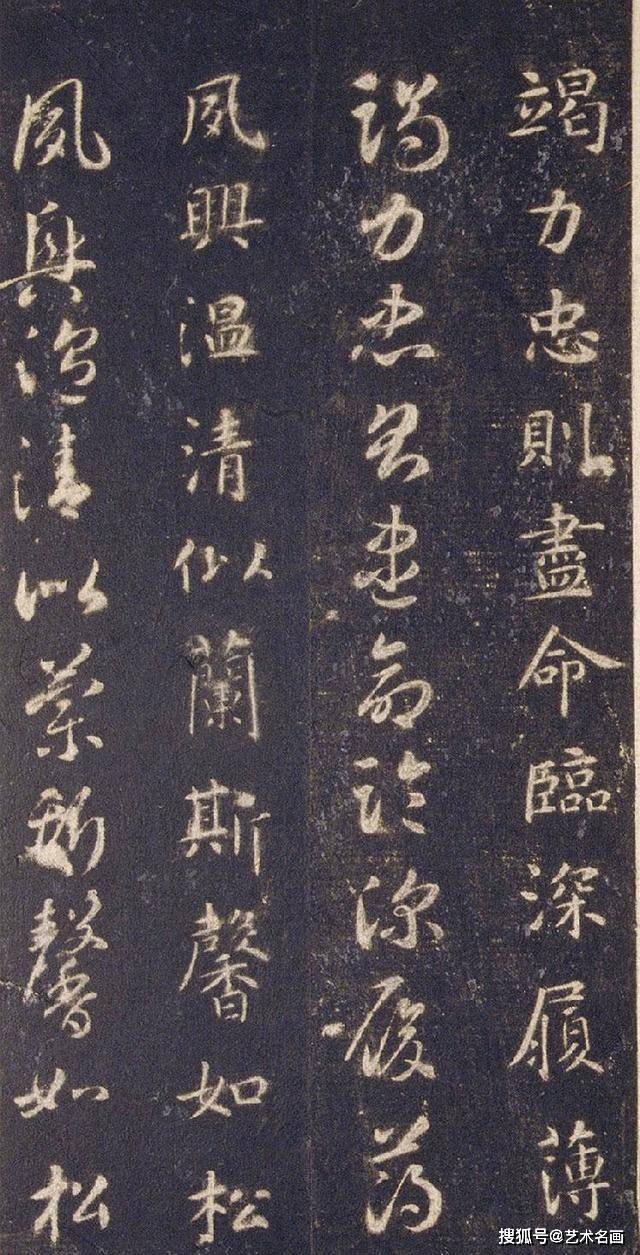 竭力忠則盡命臨深履薄
竭力忠則盡命臨深履薄
夙興温清似蘭斯馨如松
夙興温清似蘭斯馨如松
搜狐号@艺术名画